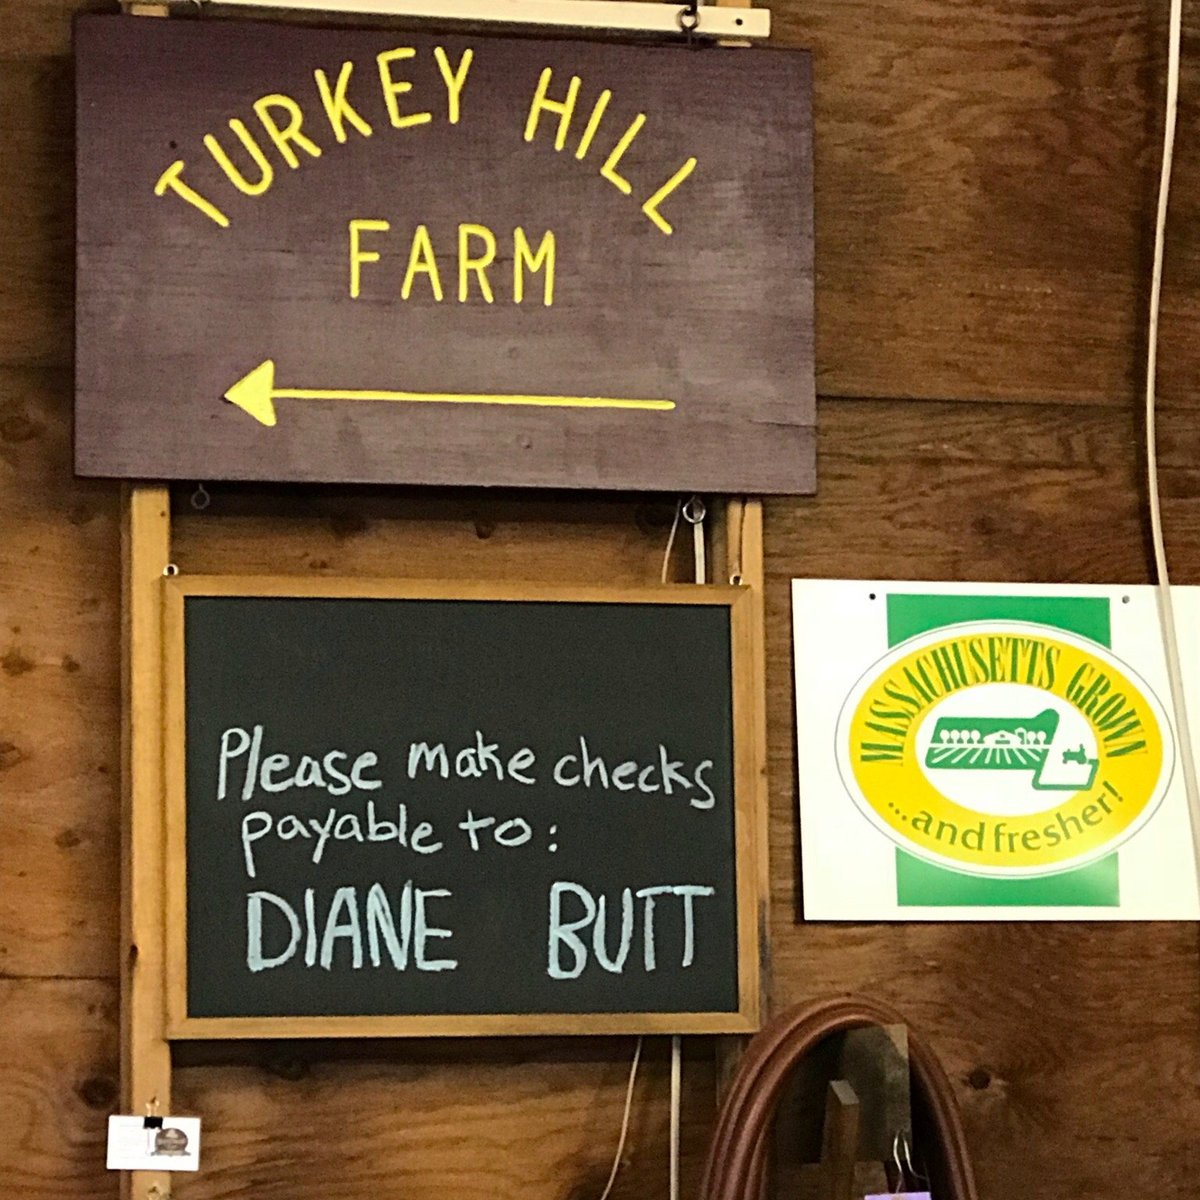 TURKEY HILL
FARM
Please make checks
payable to:
DIANE BUTT
MASSACHUSETTS GROWN
...and fresher!